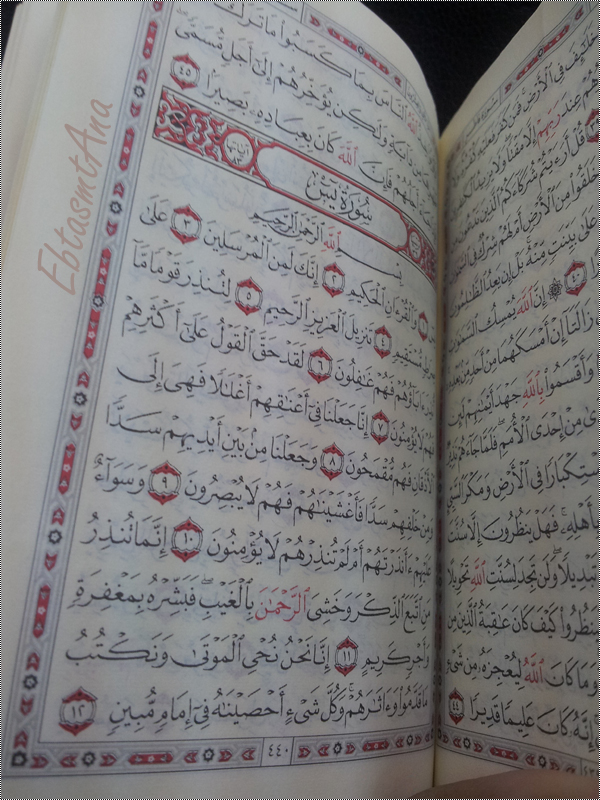 خَلَٰٓئِفَ فِى ٱلْأَرْضِ فَمَن كَفَرَ فَعَلَيْهِ
عِندَ رَبِّهِمْ إِلَّا مَقْتًا وَلَا يَزِيدُ
قُلْ أَرَءَيْتُمْ شُرَكَآءَكُمُ ٱلَّذِينَ
خَلَقُوا۟ مِنَ ٱلْأَرْضِ أَمْ لَهُمْ شِرْكٌ فِى
عَلَىٰ بَيِّنَتٍ مِّنْهُ بَلْ إِن يَعِدُ ٱلظَّٰلِمُونَ
٤٠ ۞ إِنَّ ٱللَّهَ يُمْسِكُ ٱلسَّمَٰوَٰتِ
زَالَتَآ إِنْ أَمْسَكَهُمَا مِنْ أَحَدٍ مِّنۢ بَعْدِ
وَأَقْسَمُوا۟ بِٱللَّهِ جَهْدَ أَيْمَٰنِهِمْ لَئِن
مِنْ إِحْدَى ٱلْأُمَمِ فَلَمَّا جَآءَهُمْ
ٱسْتِكْبَارًا فِى ٱلْأَرْضِ وَمَكْرَ ٱلسَّيِّئِ
بِأَهْلِهِۦ فَهَلْ يَنظُرُونَ إِلَّا سُنَّتَ
تَبْدِيلًا وَلَن تَجِدَ لِسُنَّتِ ٱللَّهِ تَحْوِيلًا
يَنظُرُوا۟ كَيْفَ كَانَ عَٰقِبَةُ ٱلَّذِينَ مِن
وَمَا كَانَ ٱللَّهُ لِيُعْجِزَهُۥ مِن شَىْءٍ
إِنَّهُۥ كَانَ عَلِيمًا قَدِيرًا ٤٤
ٱللَّهُ ٱلنَّاسَ بِمَا كَسَبُوا۟ مَا تَرَكَ
مِن دَآبَّةٍ وَلَٰكِن يُؤَخِّرُهُمْ إِلَىٰٓ أَجَلٍ مُّسَمًّى
أَجَلُهُمْ فَإِنَّ ٱللَّهَ كَانَ بِعِبَادِهِۦ بَصِيرًۢا ٤٥
سُورَةُ يسٓ
بِسْمِ ٱللَّهِ ٱلرَّحْمَٰنِ ٱلرَّحِيمِ
١ وَٱلْقُرْءَانِ ٱلْحَكِيمِ ٢ إِنَّكَ لَمِنَ ٱلْمُرْسَلِينَ ٣ عَلَىٰ
صِرَٰطٍ مُّسْتَقِيمٍ ٤ تَنزِيلَ ٱلْعَزِيزِ ٱلرَّحِيمِ ٥ لِتُنذِرَ قَوْمًا مَّآ
أُنذِرَ ءَابَآؤُهُمْ فَهُمْ غَٰفِلُونَ ٦ لَقَدْ حَقَّ ٱلْقَوْلُ عَلَىٰٓ أَكْثَرِهِمْ
فَهُمْ لَا يُؤْمِنُونَ ٧ إِنَّا جَعَلْنَا فِىٓ أَعْنَٰقِهِمْ أَغْلَٰلًا فَهِىَ إِلَى
ٱلْأَذْقَانِ فَهُم مُّقْمَحُونَ ٨ وَجَعَلْنَا مِنۢ بَيْنِ أَيْدِيهِمْ سَدًّا
وَمِنْ خَلْفِهِمْ سَدًّا فَأَغْشَيْنَٰهُمْ فَهُمْ لَا يُبْصِرُونَ ٩ وَسَوَآءٌ
عَلَيْهِمْ ءَأَنذَرْتَهُمْ أَمْ لَمْ تُنذِرْهُمْ لَا يُؤْمِنُونَ ١٠ إِنَّمَا تُنذِرُ
مَنِ ٱتَّبَعَ ٱلذِّكْرَ وَخَشِىَ ٱلرَّحْمَٰنَ بِٱلْغَيْبِ ۖ فَبَشِّرْهُ بِمَغْفِرَةٍ
وَأَجْرٍ كَرِيمٍ ١١ إِنَّا نَحْنُ نُحْىِ ٱلْمَوْتَىٰ وَنَكْتُبُ
مَا قَدَّمُوا۟ وَءَاثَٰرَهُمْ ۚ وَكُلَّ شَىْءٍ أَحْصَيْنَٰهُ فِىٓ إِمَامٍ مُّبِينٍ ١٢
٤٤٠
EbtasmtAna